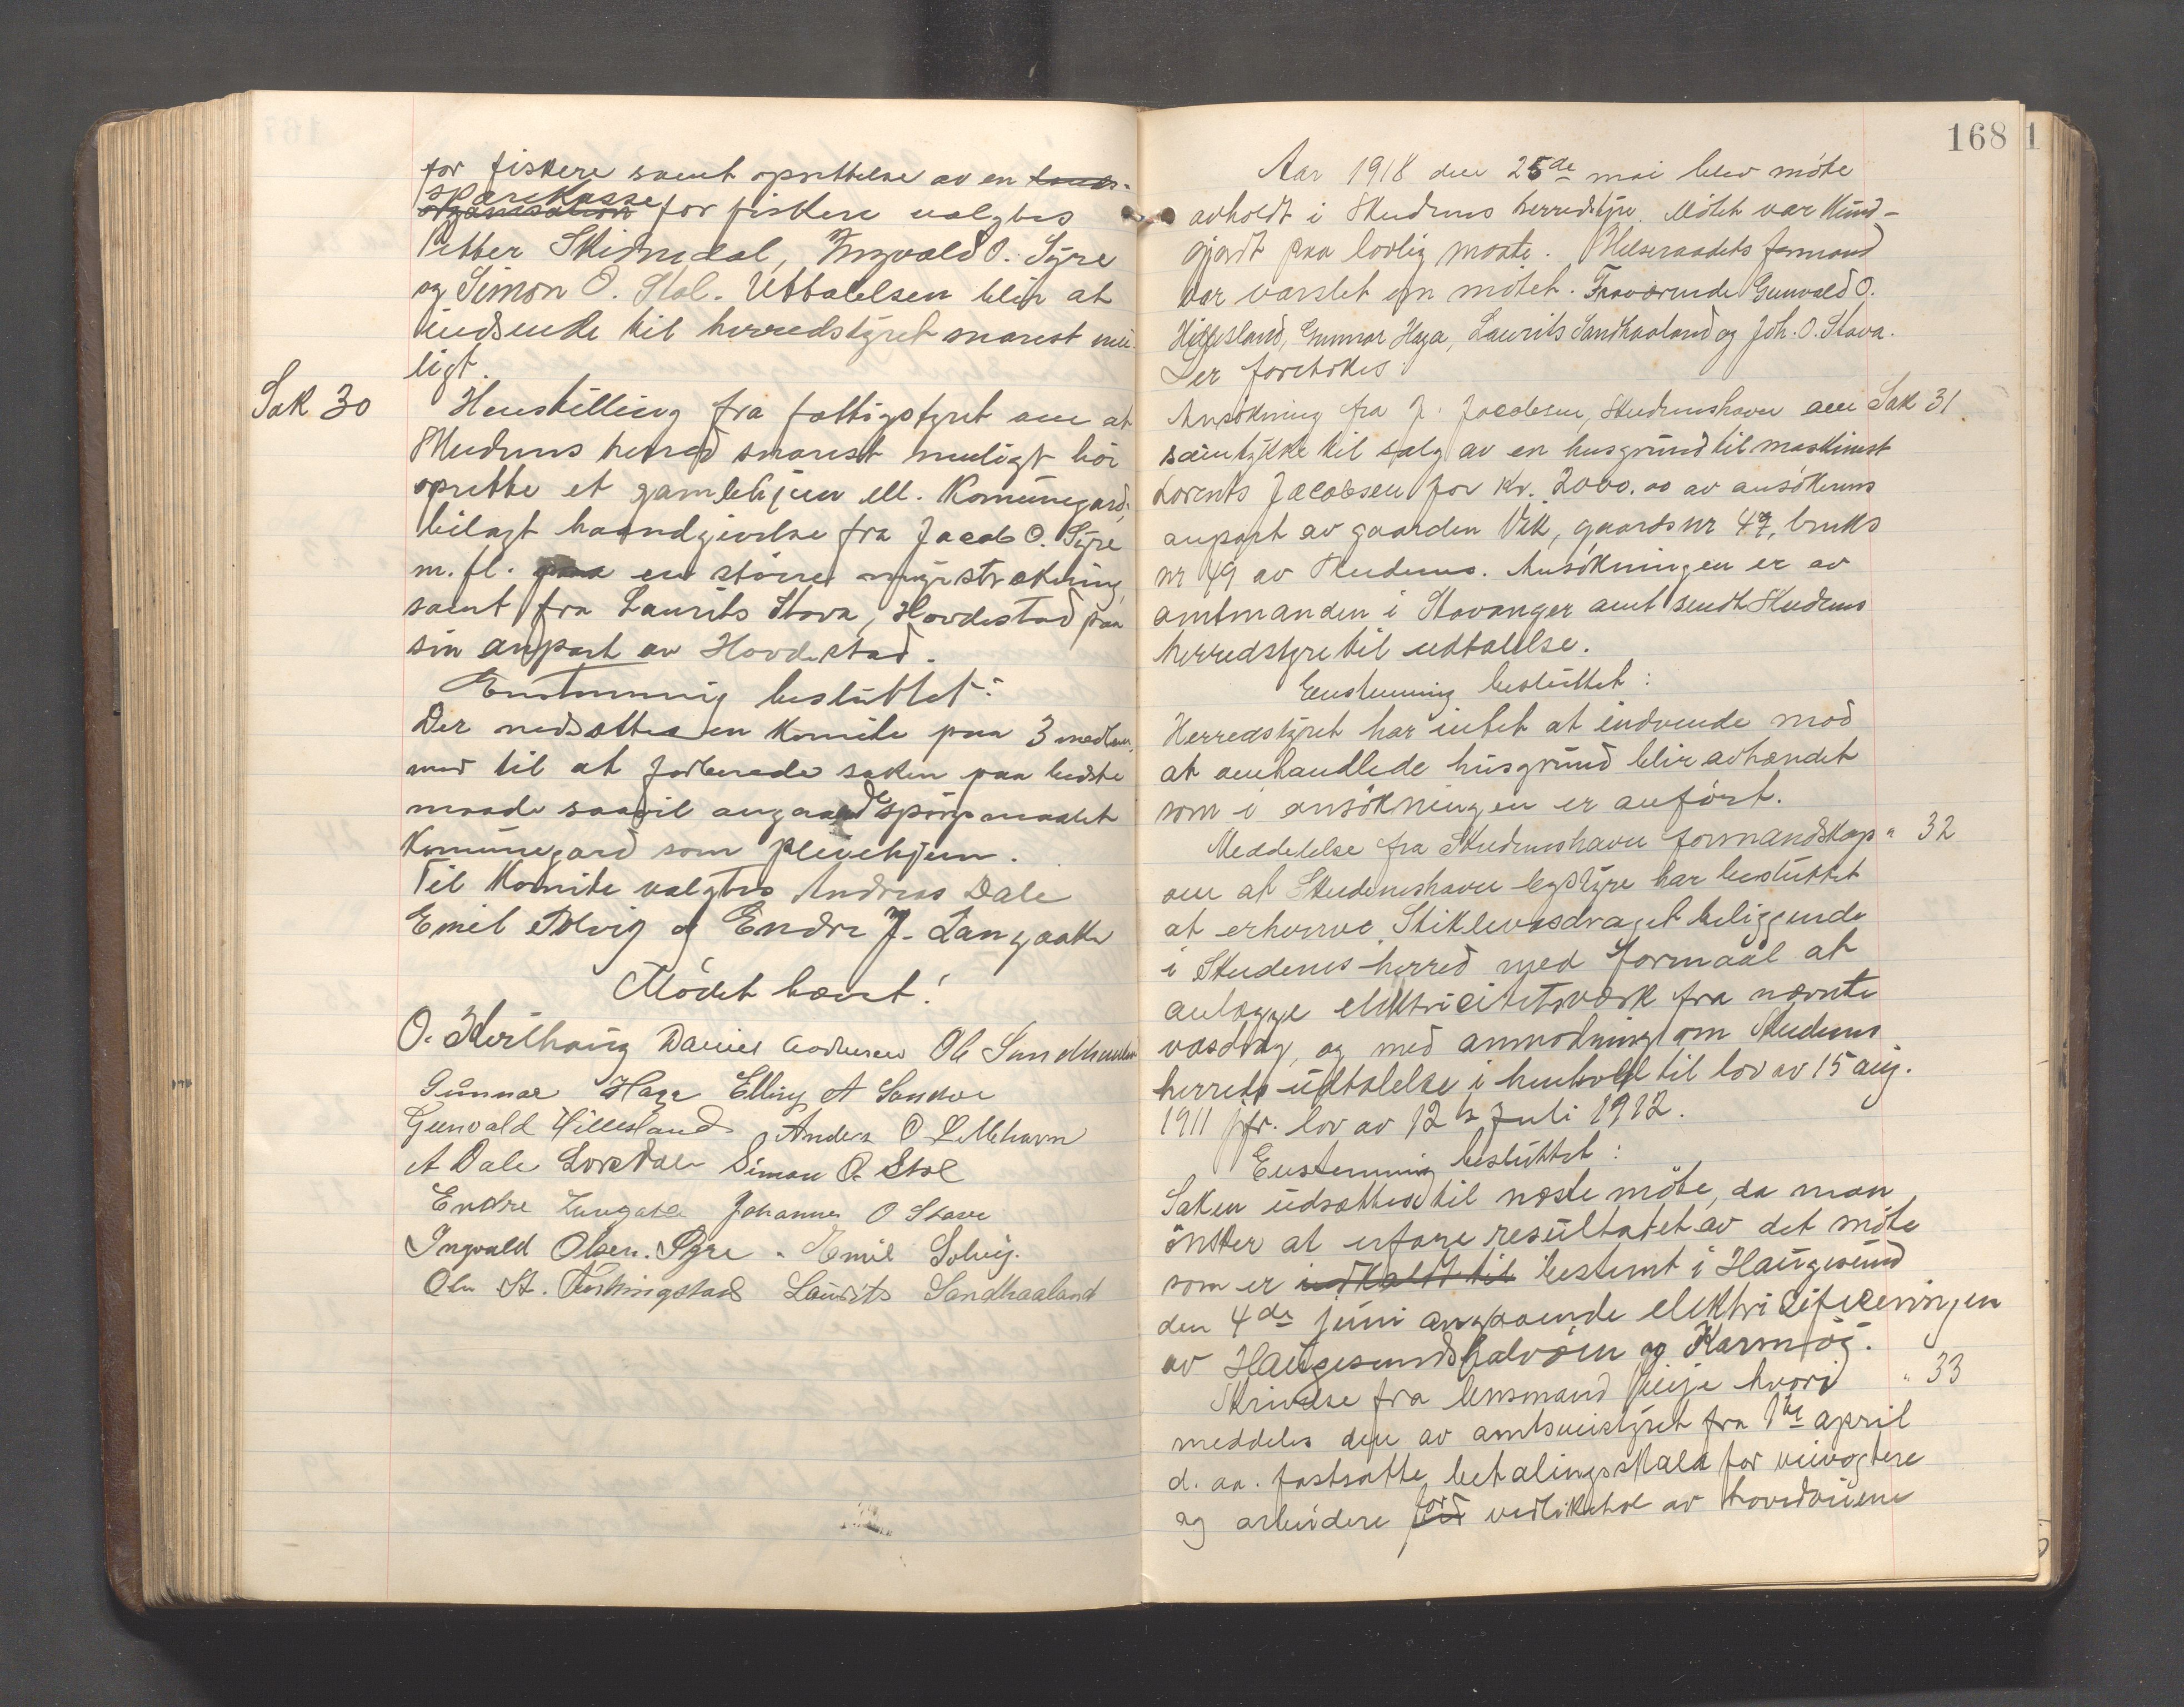 for fiskere samt oprettelse av en lands-
organisation sparekasse for fiskere valgtes
Petter Skidmedal, Ingvald O. Syre
og Simon O. Stol. Uttalelsen blir at
indsende til herredstyret snarest mu-
ligt.
Sak 30
Henstilling fra fattigstyret om at
Skudenes herred snarest muligt bör
oprette et gamlehjem ell. Komunegard,
bilagt haandgivelse fra Jacob O. Syre
m. fl. paa en större myrstrækning,
samt fra Laurits Stava, Hovdestad paa
sin anpart av Hovdestad.
Enstemmig besluttet:
Der nedsættes en komite paa 3 medlem-
mer til at forberede saken paa bedste
maade saavel angaaende spörgsmaalet
Komunegard som pleiehjem.
Til Komite valgtes Andreas Dale
Emil Solvig og Endre J. Langaaker
Mödet hævet!
O. Kirkhaug Daniel Andreasen Ole Sandhaaland
Gunnar Haga Elling A Sandve
Gunvald Hillesland Anders O Lillehavn
A Dale Lars Dale Simon O. Stol
Endre Langaker Johannes O Stava
Ingvald Olsen. Syre. Emil Solvig.
Ole St. Ferkingstad Laurits Sandhaaland
168
1
Aar 1918 den 25de mai blev möte
avholdt i Skudenes herredstyre. Mötet var kund-
gjordt paa lovlig maate. Helseraadets formand
var varslet om mötet. Fraværende Gunvald O.
Hillesland, Gunnar Haga, Laurits Sandhaaland og Joh. O. Stava.
Der foretokes:
Ansökning fra J. Jacobsen, Skudeneshavn om Sak 31
samtykke til salg av en husgrund til maskinist
Lorents Jacobsen for kr. 2000.00 av ansökerens
anpart av gaarden Vik, gaards nr 47, bruks
nr 49 av Skudenes. Ansökningen er av
amtmanden i Stavanger amt sendt Skudenes
herredstyre til udtalelse.
Enstemmig besluttet:
Herredstyret har intet at indvende mod
at omhandlede husgrund blir avhændet
som i ansökningen er anfört.
Meddelelse fra Skudeneshavn formandskap " 32
om at Skudeneshavn bystyre har besluttet
at erhverve Stiklevasdraget beliggende
i Skudenes herred med formaal at
anlægge elektricitetsværk fra nævnte
vasdrag, og med anmodning om Skudenes
herreds udtalelse i henhold til lov av 15 aug.
1911 jfr. lov av 12te Juli 1912.
Enstemmig besluttet:
Saken udsættes til næste möte, da man
önsker at erfare resultatet av det möte
som er indkaldt til bestemt i Haugesund
den 4de juni angaaende elektrificeringen
av Haugesundshalvöen og Karmöy.
Skrivelse fra lensmand Veije hvori " 33
meddeles den av amtsveistyret fra 1ste april
d. aa. fastsatte betalingsskala for veivogtere
og arbeidere for ved vedlikehol av hovedveiene